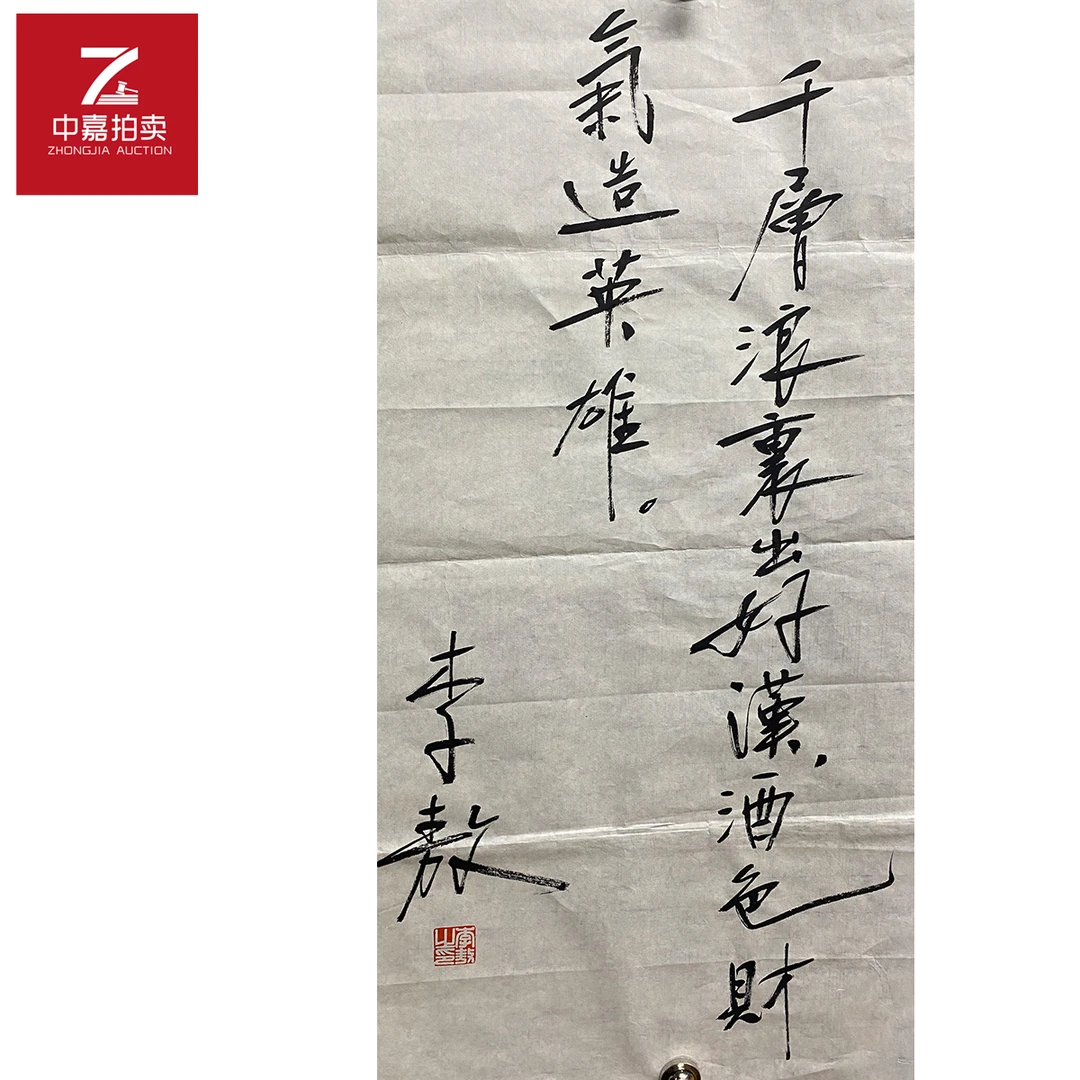 中嘉拍卖
ZHONGJIA AUCTION
千層浪裏出好漢,酒色財
氣造英雄。
李敖
李敖之印